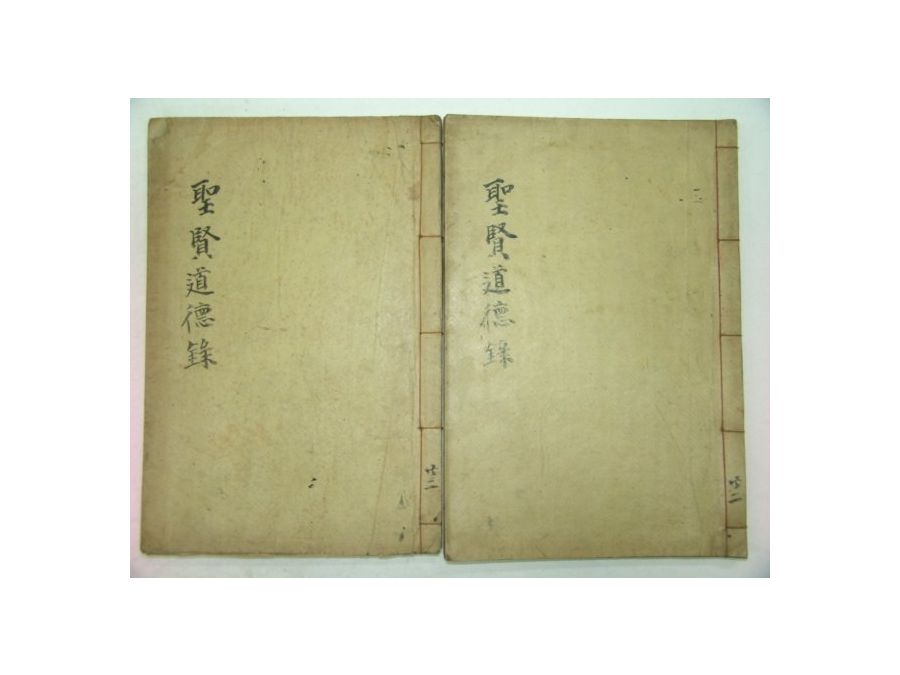 聖賢道德錄
一
共二
聖賢道德錄
二
共二